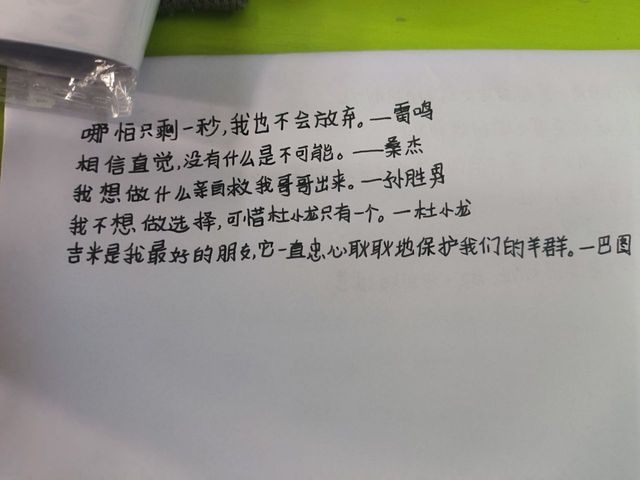 哪怕只剩一秒,我也不会放弃。—雷鸣
相信直觉,没有什么是不可能。——桑杰
我想做什么亲自救我哥哥出来。—孙胜男
我不想做选择,可惜杜小龙只有一个。—杜小龙
吉米是我最好的朋友,它一直忠心耿耿地保护我们的羊群。—巴图